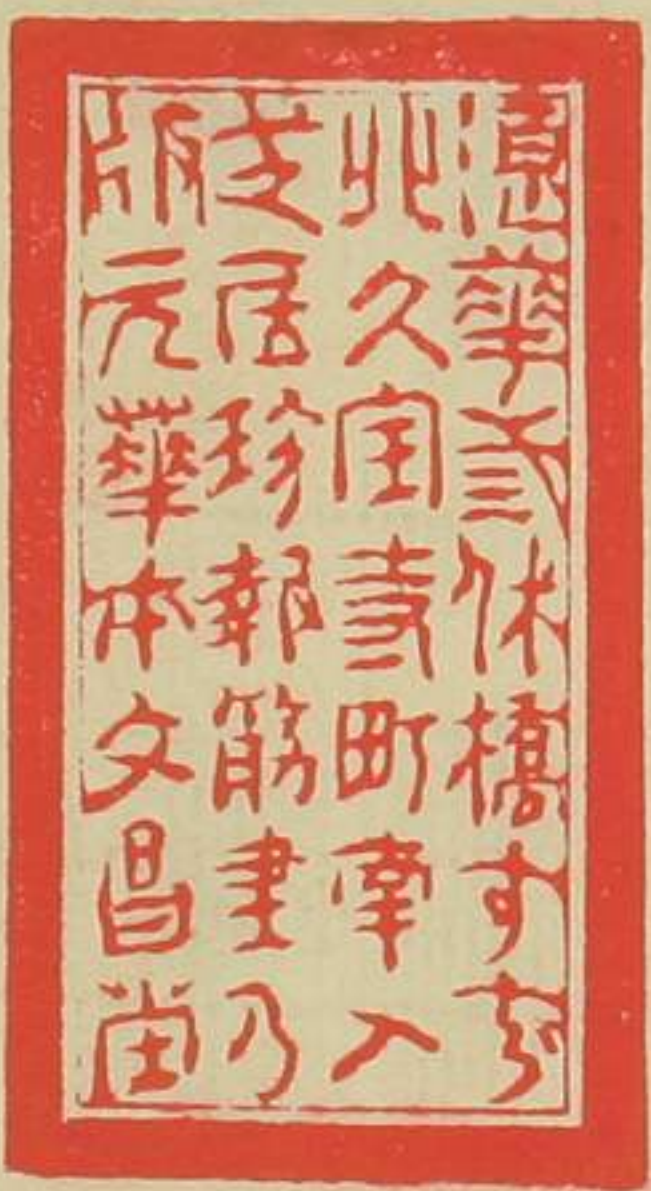 浪華弎休橋すぢ
北久宝寺町南入
芝居珍報筋書乃
版元華本文昌堂